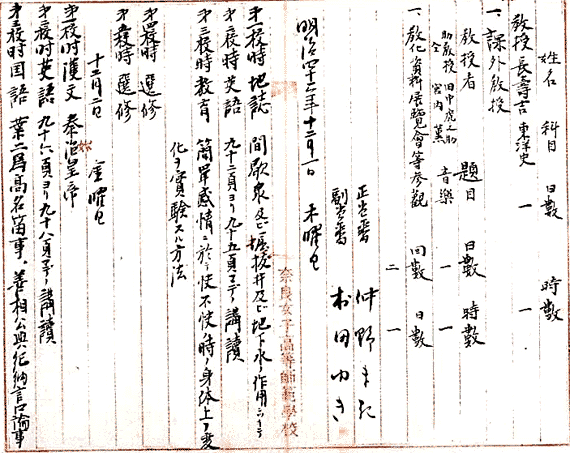 姓名 科目 日數 時數
教授 長壽吉 東洋史 一 一
一、課外教授
教授者 題目 日數 時數
助教授 田中虎之助
仝 宮内薫 音樂 一 一
一、教化資料展覽會等參觀 回數 日數
二 一
明治四十二年十二月一日 木曜日
正当番 仲野まき
副当番 本田ゆき
第一校時 地誌 間歇泉及ビ掘抜井及ビ地下水ノ作用
第二校時 英語 九十二頁ヨリ九十五頁マデ講讀
第三校時 教育 簡單感情ニ於テ快不快ノ時ノ身体上ノ変
化ヲ實験スル方法
第四校時 選修
第五校時 選修
十二月二日 金曜日
第一校時 漢文 秦始皇帝
第二校時 英語 九十六頁ヨリ九十八頁マデ講讀
第三校時 国語 葉二爲高名笛事。善相公與紀納言口論事
奈良女子高等師範學校